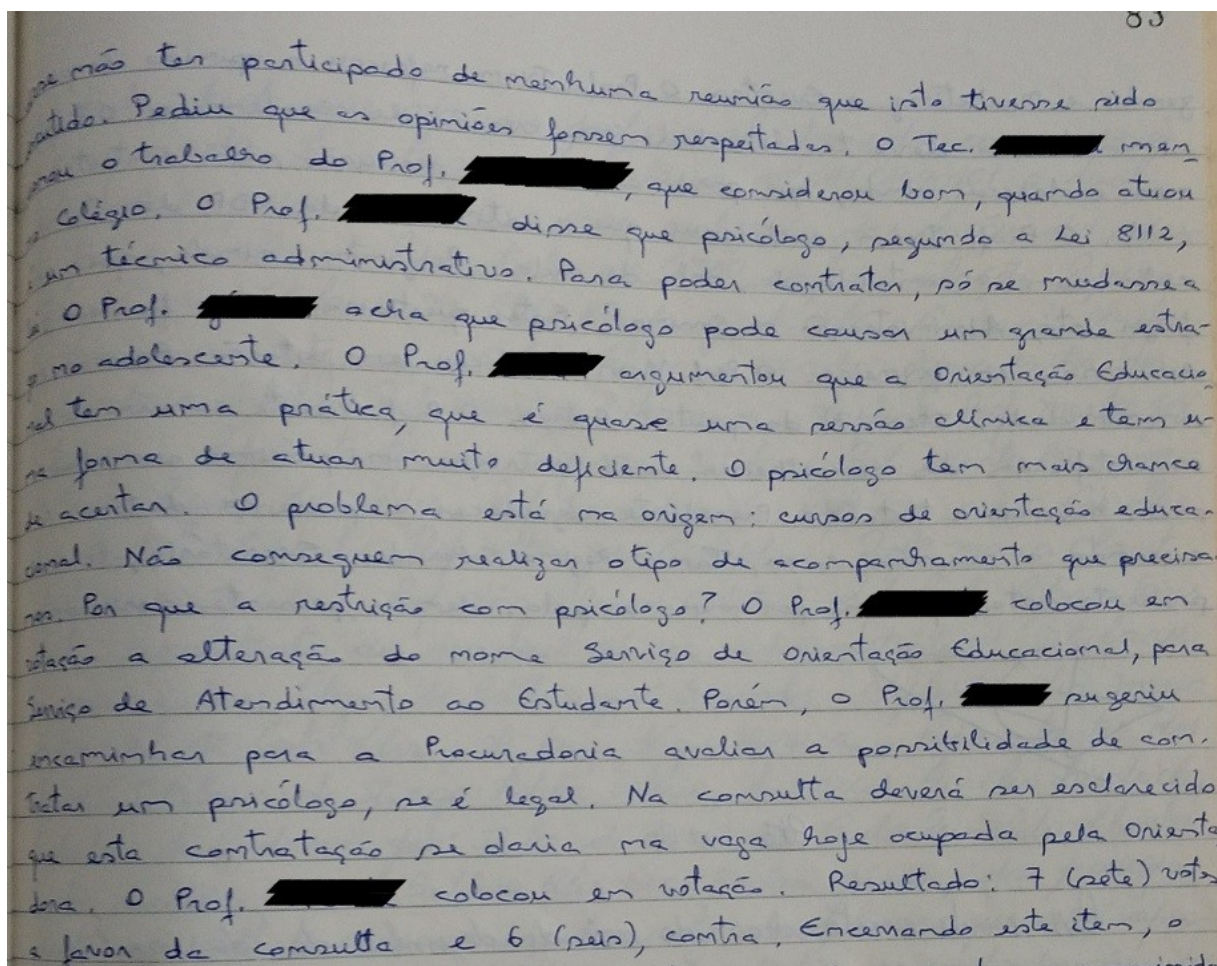 83
não ter participado de nenhuma reunião que isto tivesse sido
Pediu que as opiniões fossem respeitadas. O Tec. men
o trabalho do Prof. , que considerou bom, quando atuou
Colégio. O Prof. disse que psicólogo, segundo a Lei 8112,
um técnico administrativo. Para poder contratar, só se mudasse a
O Prof. acha que psicólogo pode causar um grande estra-
no adolescente. O Prof. argumentou que a Orientação Educacio
nal tem uma prática, que é quase uma versão clínica e tem u-
ma forma de atuar muito deficiente. O psicólogo tem mais chance
de acertar. O problema está na origem: cursos de orientação educa-
cional. Não conseguem realizar o tipo de acompanhamento que precisa
mos. Por que a restrição com psicólogo? O Prof. colocou em
votação a alteração do nome Serviço de Orientação Educacional, para
Serviço de Atendimento ao Estudante. Porém, o Prof. sugeriu
encaminhar para a Procuradoria avaliar a possibilidade de con-
tratar um psicólogo, se é legal. Na consulta deverá ser esclarecido
que esta contratação se daria na vaga hoje ocupada pela Orienta
dora. O Prof. colocou em votação. Resultado: 7 (sete) votos
a favor da consulta e 6 (seis), contra. Encerrando este item, o